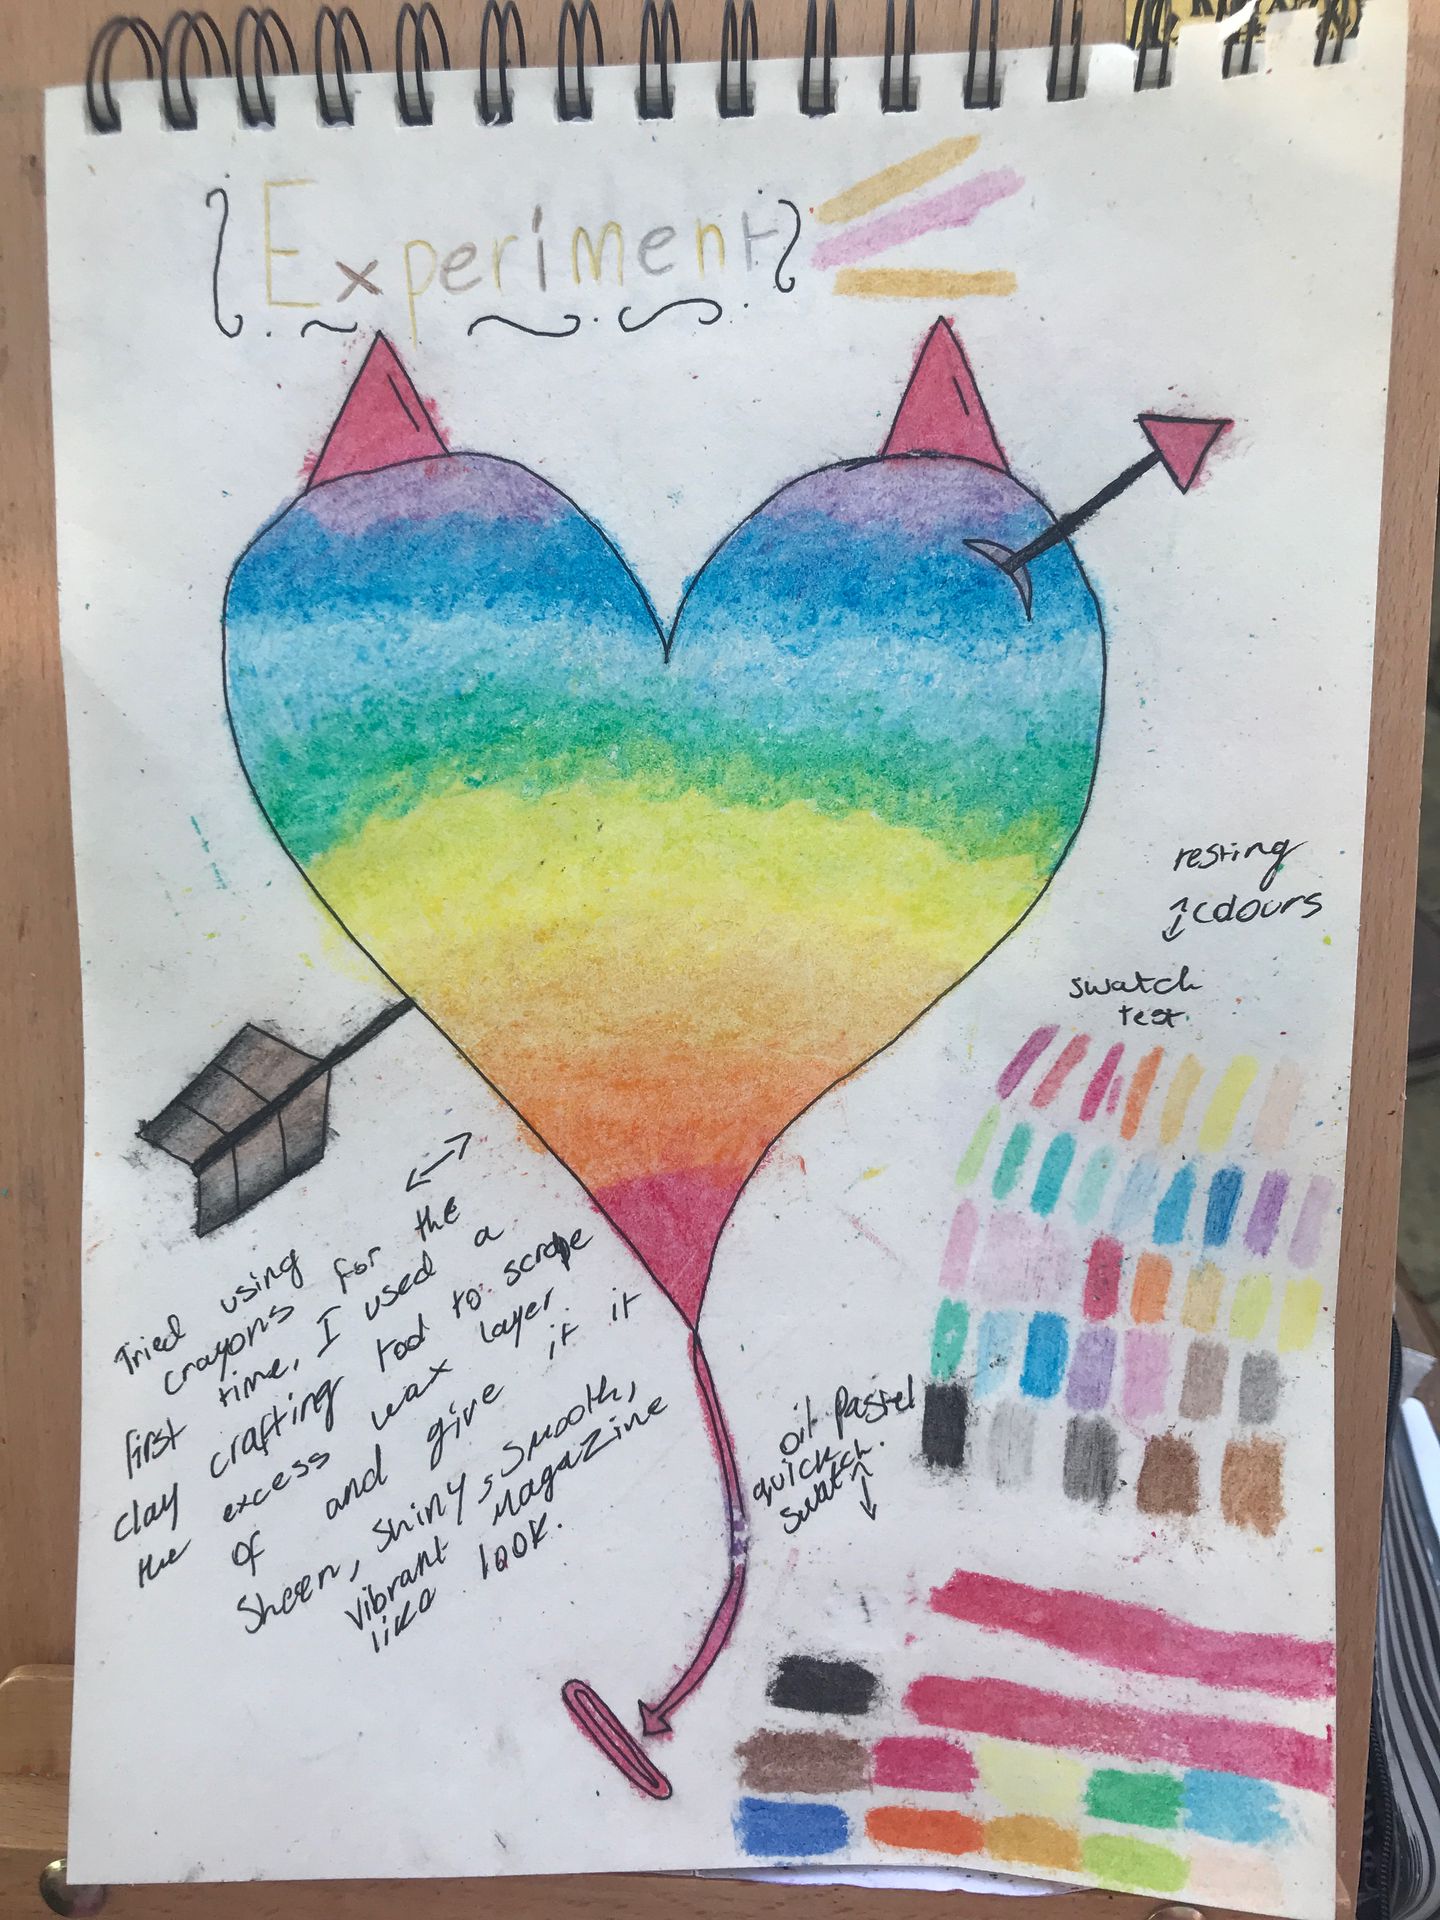 Experiment
resting
colours
swatch
test
Tried using
crayons for the
first time, I used a
clay crafting tool to scrape
the excess wax layer
of and give it it
sheen, shiny, smooth,
vibrant magazine
like look.
oil pastel
quick
swatch.